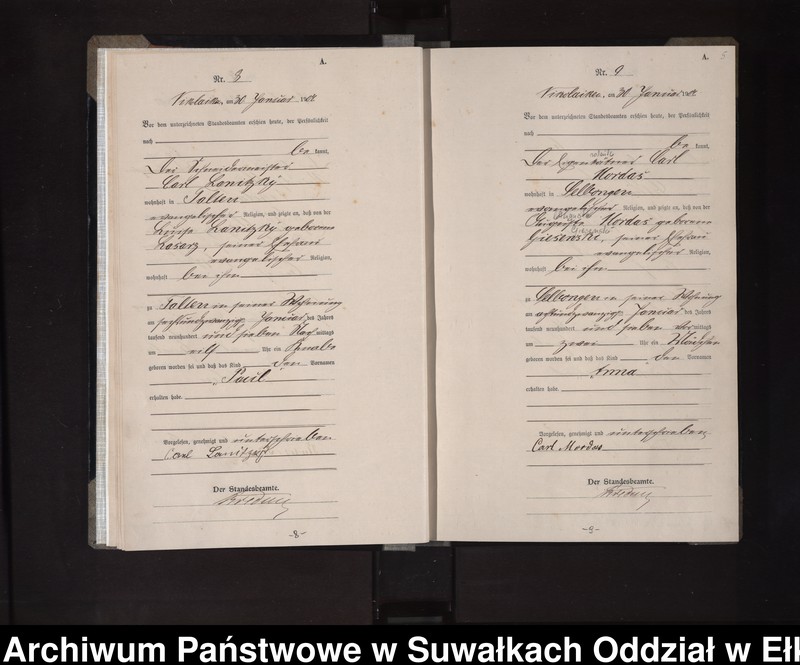 A.
Nr. 8
Nikolaiken, am 30 Januar 190
Vor dem unterzeichneten Standesbeamten erschien heute, der Persönlichkeit
nach
be kannt,
Der Schneidermeister
Carl Lanitzky
wohnhaft in Talten
evangelischer Religion, und zeigte an, daß von der
Luise Lanitzky geborene
seiner Ehefrau
evangelischer Religion,
wohnhaft bei ihm
zu Talten in seiner Wohnung
am sechsundzwanzig Januar des Jahres
tausend neunhundert und sieben Nach mittags
um elf Uhr ein Knabe
geboren worden sei und daß das Kind den Vornamen
Paul
erhalten habe.
Vorgelesen, genehmigt und unterschrieben
Carl Lanitzky
Der Standesbeamte.
-8-
A. 5
Nr. 9
Nikolaiken, am 30 Januar 190
Vor dem unterzeichneten Standesbeamten erschien heute, der Persönlichkeit
nach
be kannt,
Der Eigenkätner Carl
Mordas
wohnhaft in Selbongen
evangelischer Religion, und zeigte an, daß von der
Mordas geborene
seiner Ehefrau
evangelischer Religion,
wohnhaft bei ihm
zu Selbongen in seiner Wohnung
am achtundzwanzig Januar des Jahres
tausend neunhundert und sieben Vor mittags
um zwei Uhr ein Mädchen
geboren worden sei und daß das Kind den Vornamen
Anna
erhalten habe.
Vorgelesen, genehmigt und unterschrieben
Carl Mordas
Der Standesbeamte.
-9-
Archiwum Państwowe w Suwałkach Oddział w Ełk